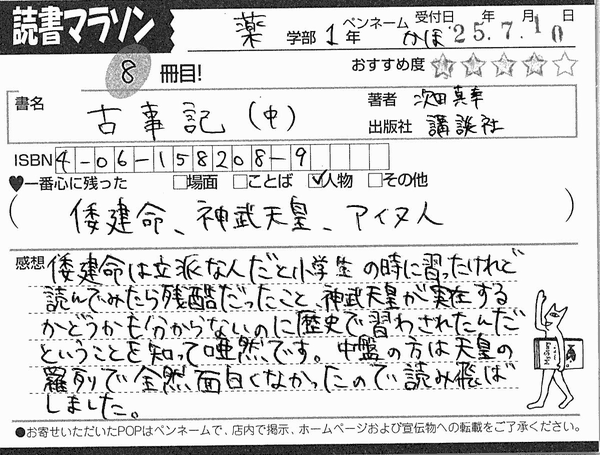 読書マラソン
薬 学部 1 年 ペンネーム かほ 受付日 年 月 日 '25.7.10
8 冊目!
おすすめ度 ★★★★☆
書名 古事記(中)
著者 次田真幸
出版社 講談社
ISBN 4-06-158208-9
♥一番心に残った □場面 □ことば ☑人物 □その他
(倭建命、神武天皇、アイヌ人)
感想 倭建命は立派な人だと小学生の時に習ったけれど
読んでみたら残酷だったこと、神武天皇が実在する
かどうかも分からないのに歴史で習わされたんだ
ということを知って唖然です。中盤の方は天皇の
羅列で全然面白くなかったので読み飛ば
しました。
●お寄せいただいたPOPはペンネームで、店内で掲示、ホームページおよび宣伝物への転載をご了承ください。